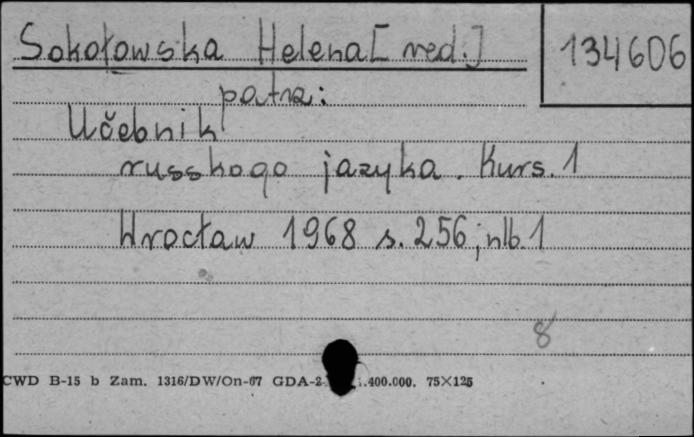 Sokołowska Helena [red.]
134606
patrz:
Učebnik
russkogo jazyka. Kurs. 1
Wrocław 1968 s. 256, nlb. 1
8
CWD B-15 b Zam. 1316/DW/On-67 GDA-2 .400.000. 75×125